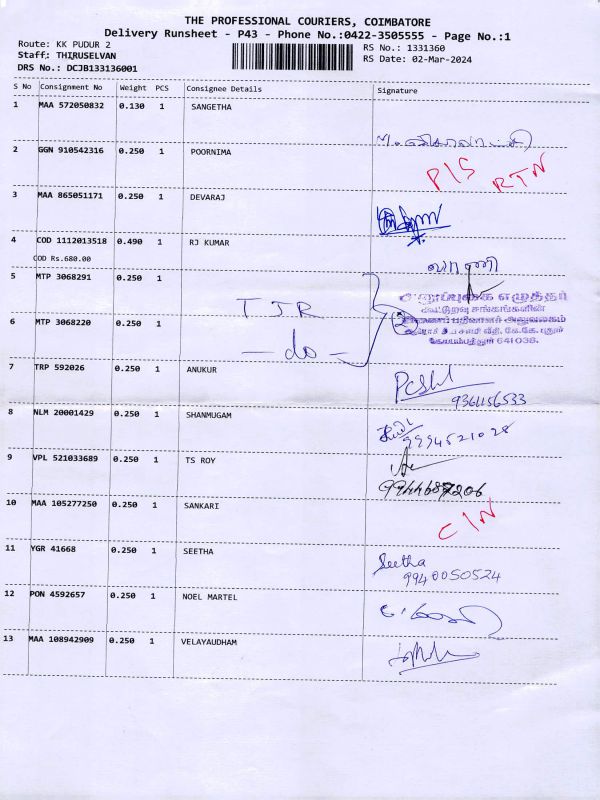 THE PROFESSIONAL COURIERS, COIMBATORE
Delivery Runsheet - P43 - Phone No.:0422-3505555 - Page No.:1
Route: KK PUDUR 2
RS No.: 1331360
Staff: THIRUSELVAN
RS Date: 02-Mar-2024
DRS No.: DCJB133136001
S No Consignment No Weight PCS Consignee Details Signature
1 MAA 572050832 0.130 1 SANGETHA
2 GGN 910542316 0.250 1 POORNIMA
P/S RTN
3 MAA 865051171 0.250 1 DEVARAJ
4 COD 1112013518 0.490 1 RJ KUMAR
COD Rs.680.00
வாணி
5 MTP 3068291 0.250 1
TJR
எழுத்தர்
கூட்டுறவு சங்கங்களின்
6 MTP 3068220 0.250 1
do
2
அலுவலகம்
வீதி, கே.கே.புதூர்
கோயம்புத்தூர் 641 038.
7 TRP 592026 0.250 1 ANUKUR
9361156533
8 NLM 20001429 0.250 1 SHANMUGAM
9994521028
9 VPL 521033689 0.250 1 TS ROY
9944687206
10 MAA 105277250 0.250 1 SANKARI
C/N
11 YGR 41668 0.250 1 SEETHA
Seetha
9940050524
12 PON 4592657 0.250 1 NOEL MARTEL
13 MAA 108942909 0.250 1 VELAYAUDHAM